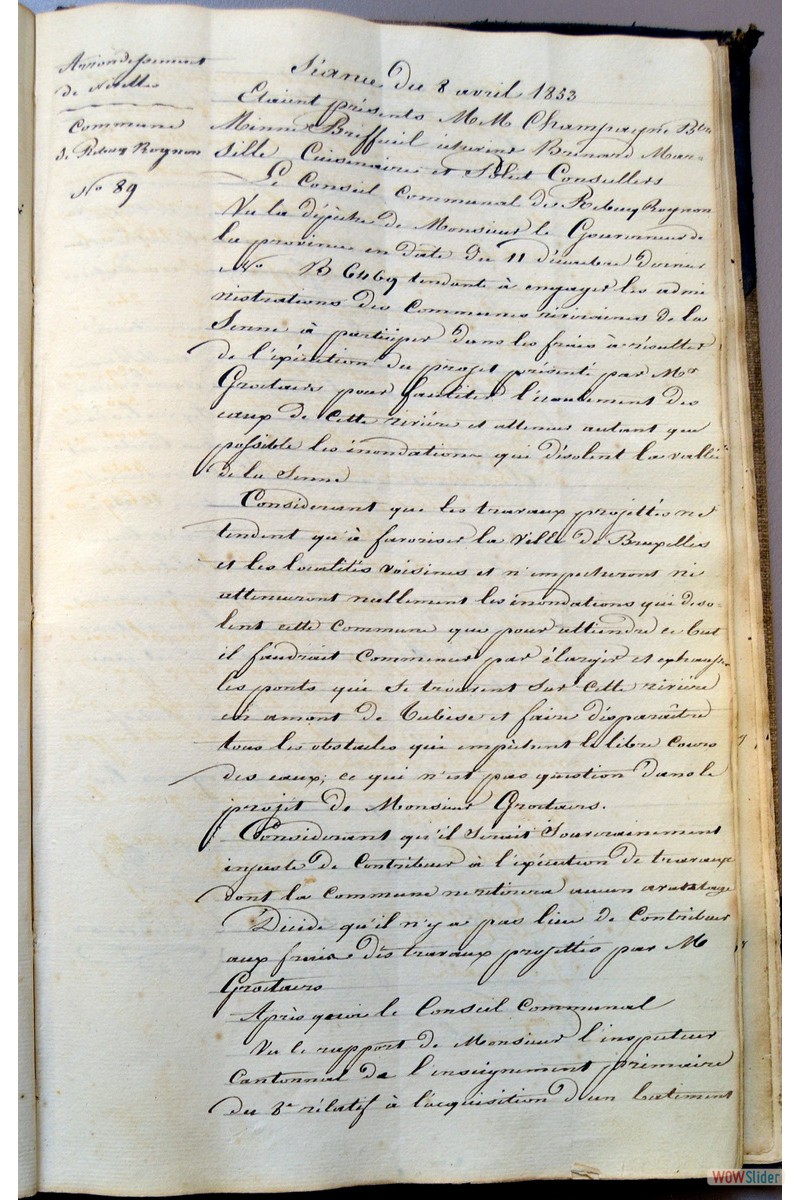 Arrondissement
de Nivelles
Commune
de Rebecq Rognon
No 89
Séance du 8 avril 1853
Etaient présents MM Champagne Btre
Minne Breffeuil Brenard Mar-
sille Cuisenaire et Conseillers
Le Conseil Communal de Rebecq Rognon
Vu la dépêche de Monsieur le Gouverneur de
la province en date du 11 décembre dernier
No B 6469 tendante à engager les admi
nistrations des communes riveraines de la
Senne à participer dans les frais à résulter
de l'exécution du projet présenté par Mr
Groetaers pour faciliter l'écoulement des
eaux de cette rivière et attenuer autant que
possible les inondations qui désolent la vallée
de la Senne
Considérant que les travaux projettés ne
tendent qu'à favoriser la ville de Bruxelles
et les localités voisines et n'empêcheront ni
attenueront nullement les inondations qui déso-
lent cette commune que pour attendre ce but
il faudrait commencer par élargir et exhausser
les ponts qui se trouvent sur cette rivière
en amont de Tubise et faire disparaître
tous les obstacles qui empêchent le libre cours
des eaux; ce qui n'est pas question dans le
projet de Monsieur Groetaers.
Considérant qu'il serait souverainement
injuste de contribuer à l'exécution de travaux
dont la commune ne retirera aucun avantage
Décide qu'il n'y a pas lieu de contribuer
aux frais des travaux projettés par M
Groetaers
Après quoi le Conseil Communal
Vu le rapport de Monsieur l'inspecteur
Cantonnal de l'enseignement primaire
du 8e rélatif à l'acquisition d'un batiment
WOWSlider